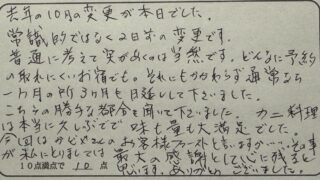 去年の10月の変更が本日でした。
常識的ではなく2日前の変更です。
普通に考えて実がめくのは当然です。どんなに予約
の取れにくいお宿でも。それにもかかわらず通常なら
1ヶ月の内1ヶ月を日延しして下さいました。
こちらの勝手な都合を聞いて下さいました。カニ料理
は本当に久しぶりで味も量も大満足でした。
今回は お客様ファーストと言いますか……
が私にとりましては最大の感謝として心に残ると
思います。ありがとうございました。
10点満点で 10 点